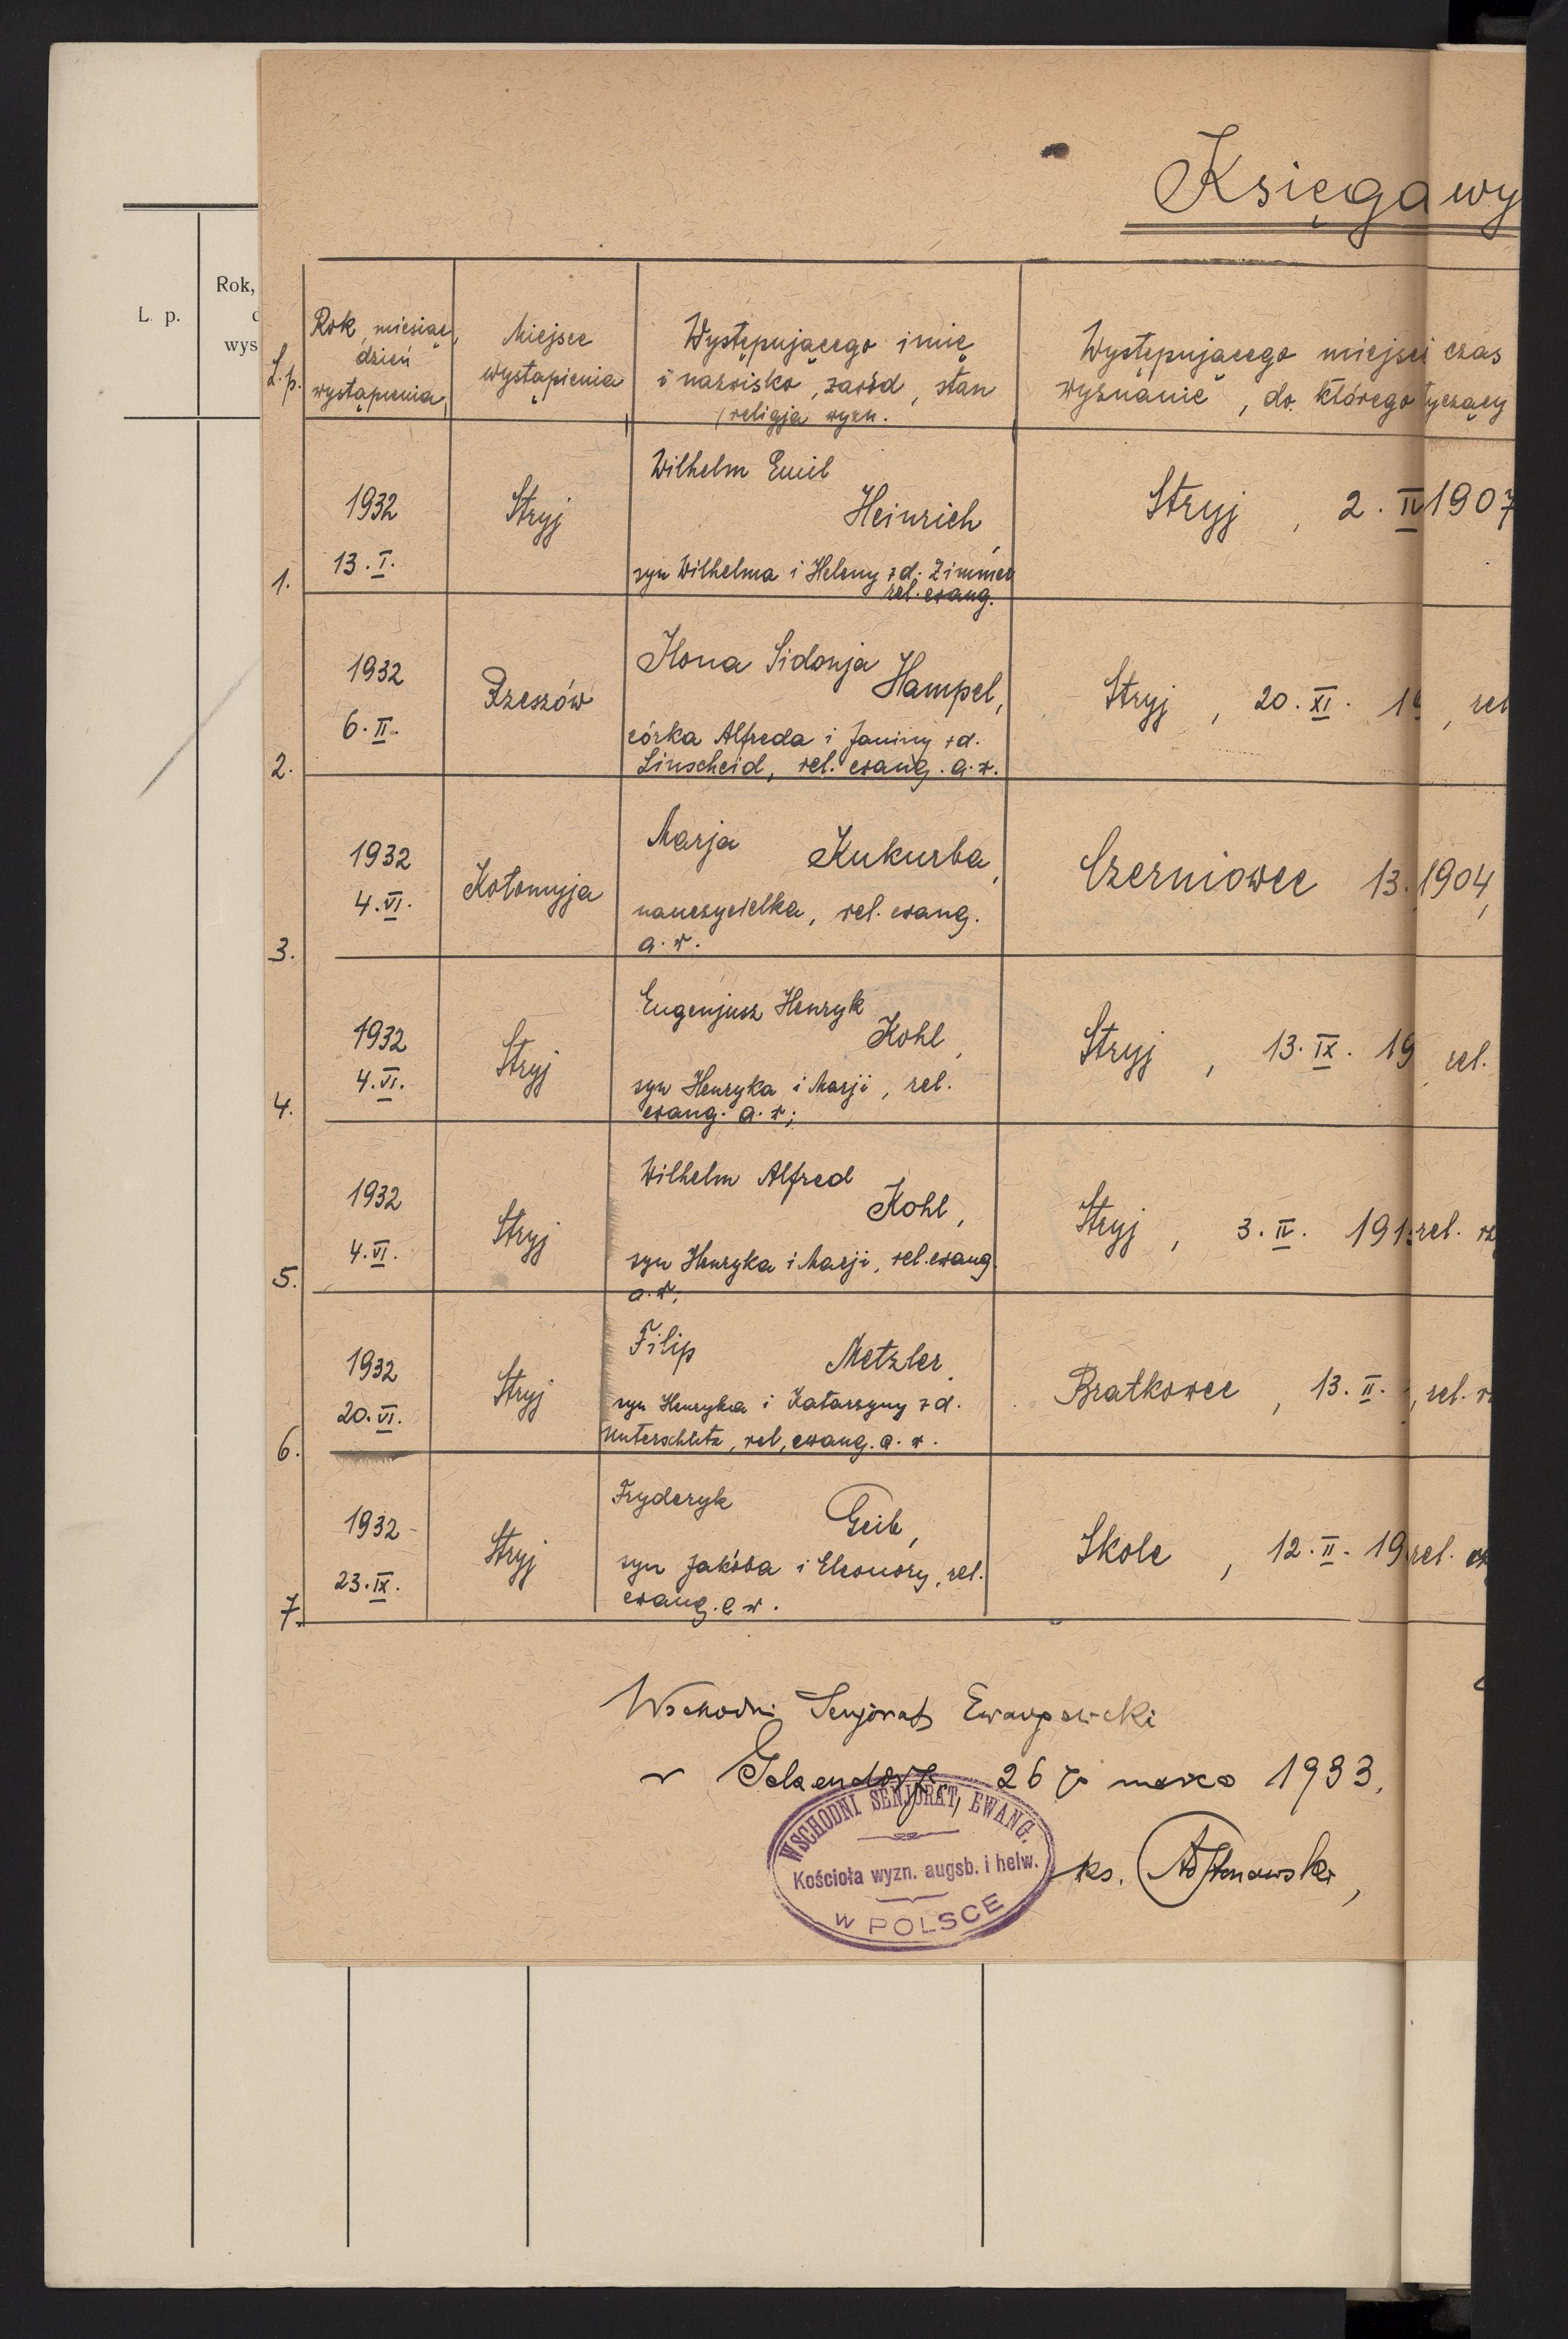 Księga wy
L. p.
Rok,
wys
L.p.
Rok, miesiąc,
dzień
wystąpienia
Miejsce
wystąpienia
Występującego imię
i nazwisko, zawód, stan
religja wyzn.
Występującego miejsc i czas
wyznanie, do którego tyczący
1.
1932
13. I.
Stryj
Wilhelm Emil
Heinrich,
syn Wilhelma i Heleny z d. Zimmer
rel. ewang.
Stryj, 2. IV 1907
2.
1932
6. II.
Rzeszów
Ilona Sidonja
Hampel,
córka Alfreda i Janiny z d.
Linscheid, rel. ewang. a. w.
Stryj, 20. XI. 19 , rel
3.
1932
4. VI.
Kołomyja
Marja Kukurba,
nauczycielka, rel. ewang.
a. w.
Czerniowce 13. 1904,
4.
1932
4. VI.
Stryj
Eugenjusz Henryk
Kohl,
syn Henryka i Marji, rel.
ewang. a. w;
Stryj, 13. IX. 19 , rel.
5.
1932
4. VI.
Stryj
Wilhelm Alfred
Kohl,
syn Henryka i Marji, rel. ewang.
a. w;
Stryj, 3. IV. 191 rel. rz
6.
1932
20. VI.
Stryj
Filip Metzler,
syn Henryka i Katarzyny z d.
rel. ewang. a. w.
Bratkowce, 13. II. , rel. r
7.
1932
23. IX.
Stryj
Fryderyk Geib,
syn Jakóba i Eleonory, rel.
ewang. a w.
Skole, 12. II. 19 rel.
Wschodni Senjorat Ewangelicki
w Gelsendorf, 26 go marca 1933.
WSCHODNI SENJORAT EWANG.
Kościoła wyzn. augsb. i helw.
W POLSCE
ks.